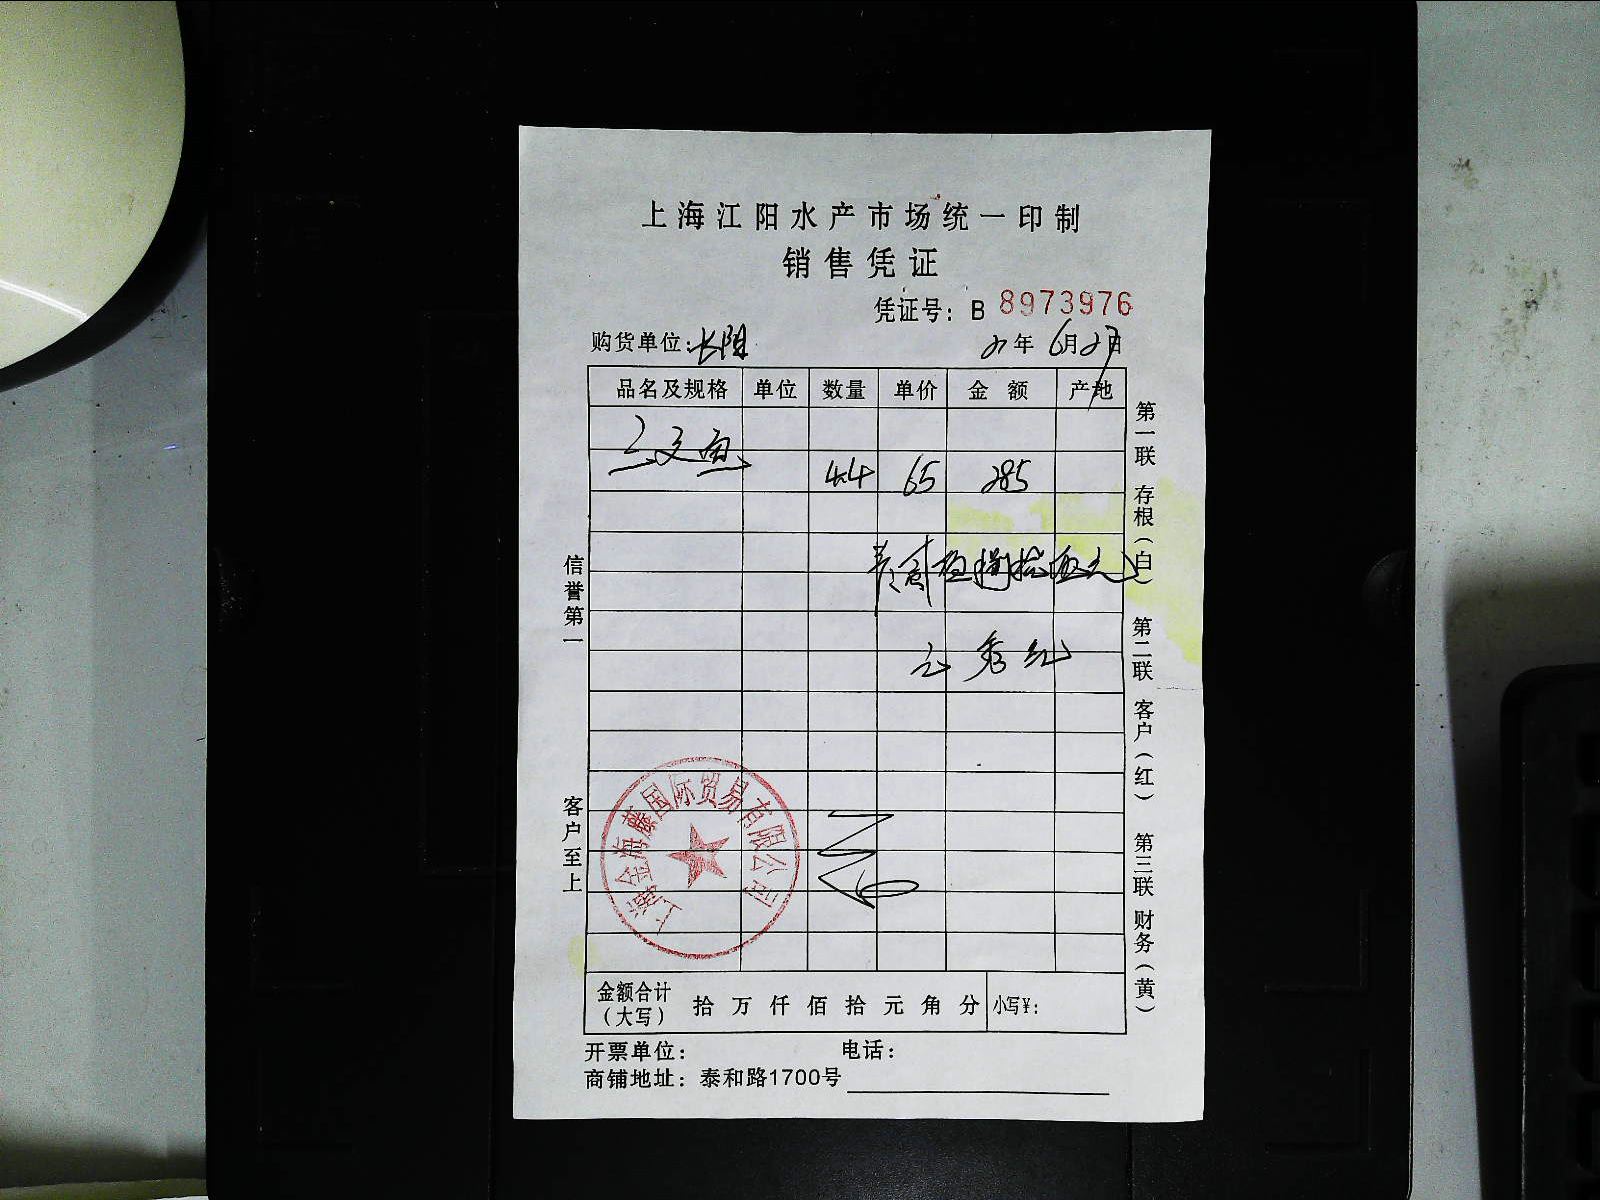 上海江阳水产市场统一印制
销售凭证
凭证号：B 8973976
购货单位：长阳 21年 6月27日
品名及规格 单位 数量 单价 金额 产地
三文鱼 4.4 65 285
贰佰捌拾伍元
秀红
信誉第一
客户至上
第一联 存根（白）
第二联 客户（红）
第三联 财务（黄）
上海金海藤国际贸易有限公司
金额合计（大写） 拾 万 仟 佰 拾 元 角 分 小写¥：
开票单位： 电话：
商铺地址：泰和路1700号